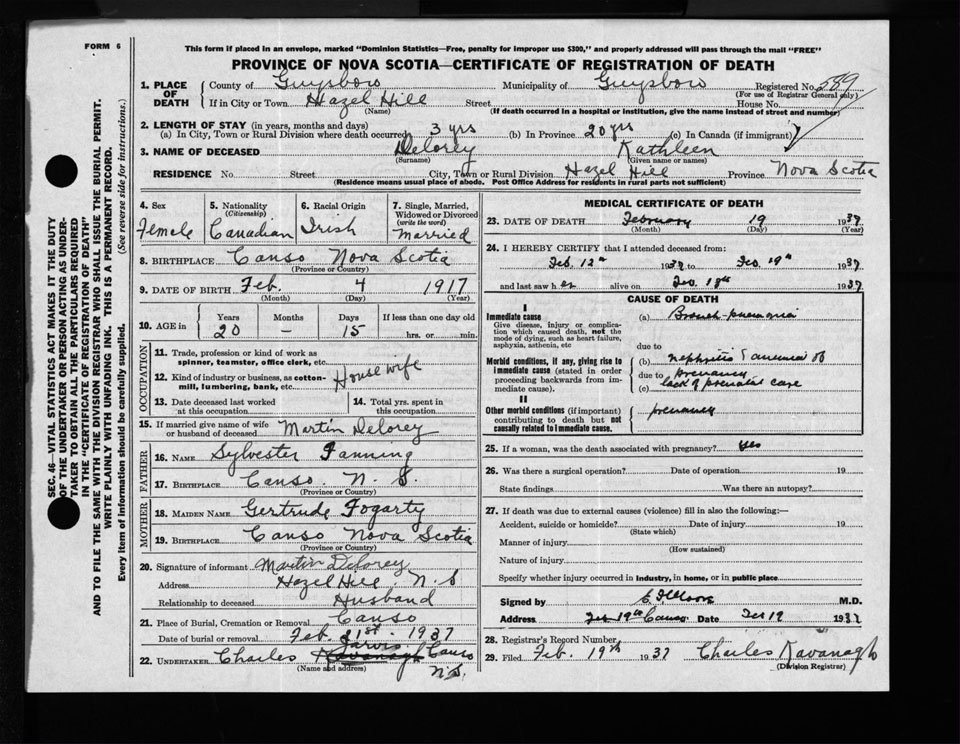 FORM 6
This form if placed in an envelope, marked "Dominion Statistics—Free, penalty for improper use $300," and properly addressed will pass through the mail "FREE"
PROVINCE OF NOVA SCOTIA—CERTIFICATE OF REGISTRATION OF DEATH
1. PLACE OF DEATH County of Guysboro Municipality of Guysboro Registered No. 289
(For use of Registrar General only)
If in City or Town Hazel Hill Street House No.
(Name) (If death occurred in a hospital or institution, give the name instead of street and number)
2. LENGTH OF STAY (in years, months and days)
(a) In City, Town or Rural Division where death occurred 3 yrs (b) In Province 20 yrs (c) In Canada (if immigrant)
3. NAME OF DECEASED Delorey Kathleen
(Surname) (Given name or names)
RESIDENCE No. Street City, Town or Rural Division Hazel Hill Province Nova Scotia
(Residence means usual place of abode. Post Office Address for residents in rural parts not sufficient)
4. Sex Female
5. Nationality (Citizenship) Canadian
6. Racial Origin Irish
7. Single, Married, Widowed or Divorced (write the word) Married
8. BIRTHPLACE Canso Nova Scotia
(Province or Country)
9. DATE OF BIRTH Feb. 4 1917
(Month) (Day) (Year)
10. AGE in Years Months Days If less than one day old
20 — 15 hrs. or min.
OCCUPATION
11. Trade, profession or kind of work as spinner, teamster, office clerk, etc.
12. Kind of industry or business, as cotton-mill, lumbering, bank, etc. House wife
13. Date deceased last worked at this occupation
14. Total yrs. spent in this occupation
15. If married give name of wife or husband of deceased Martin Delorey
FATHER
16. NAME Sylvester Fanning
17. BIRTHPLACE Canso. N. S.
(Province or Country)
MOTHER
18. MAIDEN NAME Gertrude Fogarty
19. BIRTHPLACE Canso Nova Scotia
(Province or Country)
20. Signature of informant Martin Delorey
Address Hazel Hill. N. S
Relationship to deceased Husband
21. Place of Burial, Cremation or Removal Canso
Date of burial or removal Feb. 21st. 1937
22. UNDERTAKER Charles Jarvis Kavanagh Canso N.S.
(Name and address)
MEDICAL CERTIFICATE OF DEATH
23. DATE OF DEATH February 19 1937
(Month) (Day) (Year)
24. I HEREBY CERTIFY that I attended deceased from:
Feb. 12th 1937 to Feb. 19th 1937
and last saw her alive on Feb. 18th 1937
CAUSE OF DEATH
I
Immediate cause
Give disease, injury or complication which caused death, not the mode of dying, such as heart failure, asphyxia, asthenia, etc
(a) Broncho-pneumonia
due to
Morbid conditions, if any, giving rise to immediate cause (stated in order proceeding backwards from immediate cause).
(b) nephritis & anemia of
due to pregnancy
(c) lack of prenatal care
II
Other morbid conditions (if important) contributing to death but not causally related to immediate cause.
pregnancy
25. If a woman, was the death associated with pregnancy? yes
26. Was there a surgical operation? Date of operation 19
State findings Was there an autopsy?
27. If death was due to external causes (violence) fill in also the following:—
Accident, suicide or homicide? Date of injury 19
(State which)
Manner of injury
(How sustained)
Nature of injury
Specify whether injury occurred in industry, in home, or in public place
Signed by M.D.
Address Feb 19th Canso Date Feb 19 1937
28. Registrar's Record Number
29. Filed Feb. 19th 1937 Charles Kavanagh
(Division Registrar)
SEC. 46—VITAL STATISTICS ACT MAKES IT THE DUTY
OF THE UNDERTAKER OR PERSON ACTING AS UNDER-
TAKER TO OBTAIN ALL THE PARTICULARS REQUIRED
IN THE "CERTIFICATE OF REGISTRATION OF DEATH"
AND TO FILE THE SAME WITH THE DIVISION REGISTRAR WHO SHALL ISSUE THE BURIAL PERMIT.
WRITE PLAINLY WITH UNFADING INK. THIS IS A PERMANENT RECORD.
Every item of information should be carefully supplied. (See reverse side for instructions.)